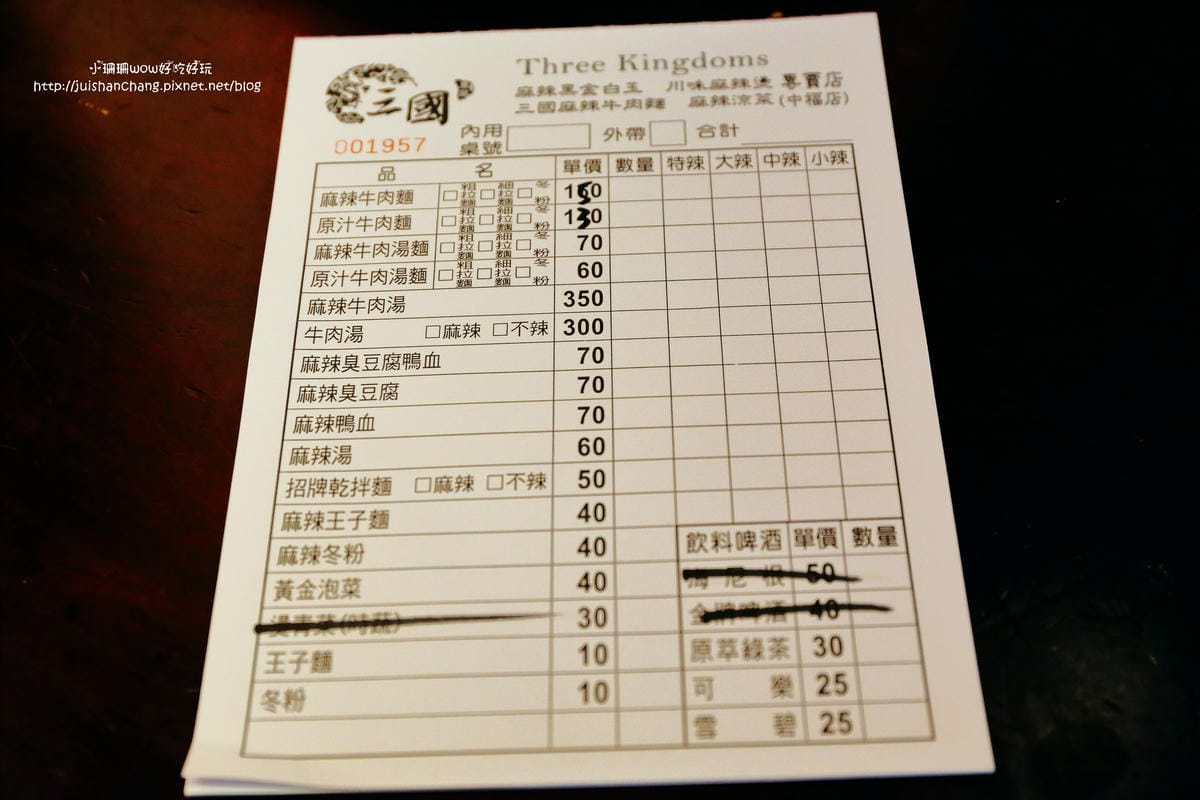 小珊珊wow好吃好玩
http://juishanchang.pixnet.net/blog
三國
Three Kingdoms
麻辣黑金白玉 川味麻辣燙 專賣店
三國麻辣牛肉麵 麻辣涼菜(中福店)
001957 內用桌號 外帶 合計
品名 單價 數量 特辣 大辣 中辣 小辣
麻辣牛肉麵 □粗拉麵 □細拉麵 □冬粉 150
原汁牛肉麵 □粗拉麵 □細拉麵 □冬粉 130
麻辣牛肉湯麵 □粗拉麵 □細拉麵 □冬粉 70
原汁牛肉湯麵 □粗拉麵 □細拉麵 □冬粉 60
麻辣牛肉湯 350
牛肉湯 □麻辣 □不辣 300
麻辣臭豆腐鴨血 70
麻辣臭豆腐 70
麻辣鴨血 70
麻辣湯 60
招牌乾拌麵 □麻辣 □不辣 50
麻辣王子麵 40
麻辣冬粉 40
黃金泡菜 40
燙青菜(時蔬) 30
王子麵 10
冬粉 10
飲料啤酒 單價 數量
海尼根 50
金牌啤酒 40
原萃綠茶 30
可樂 25
雪碧 25